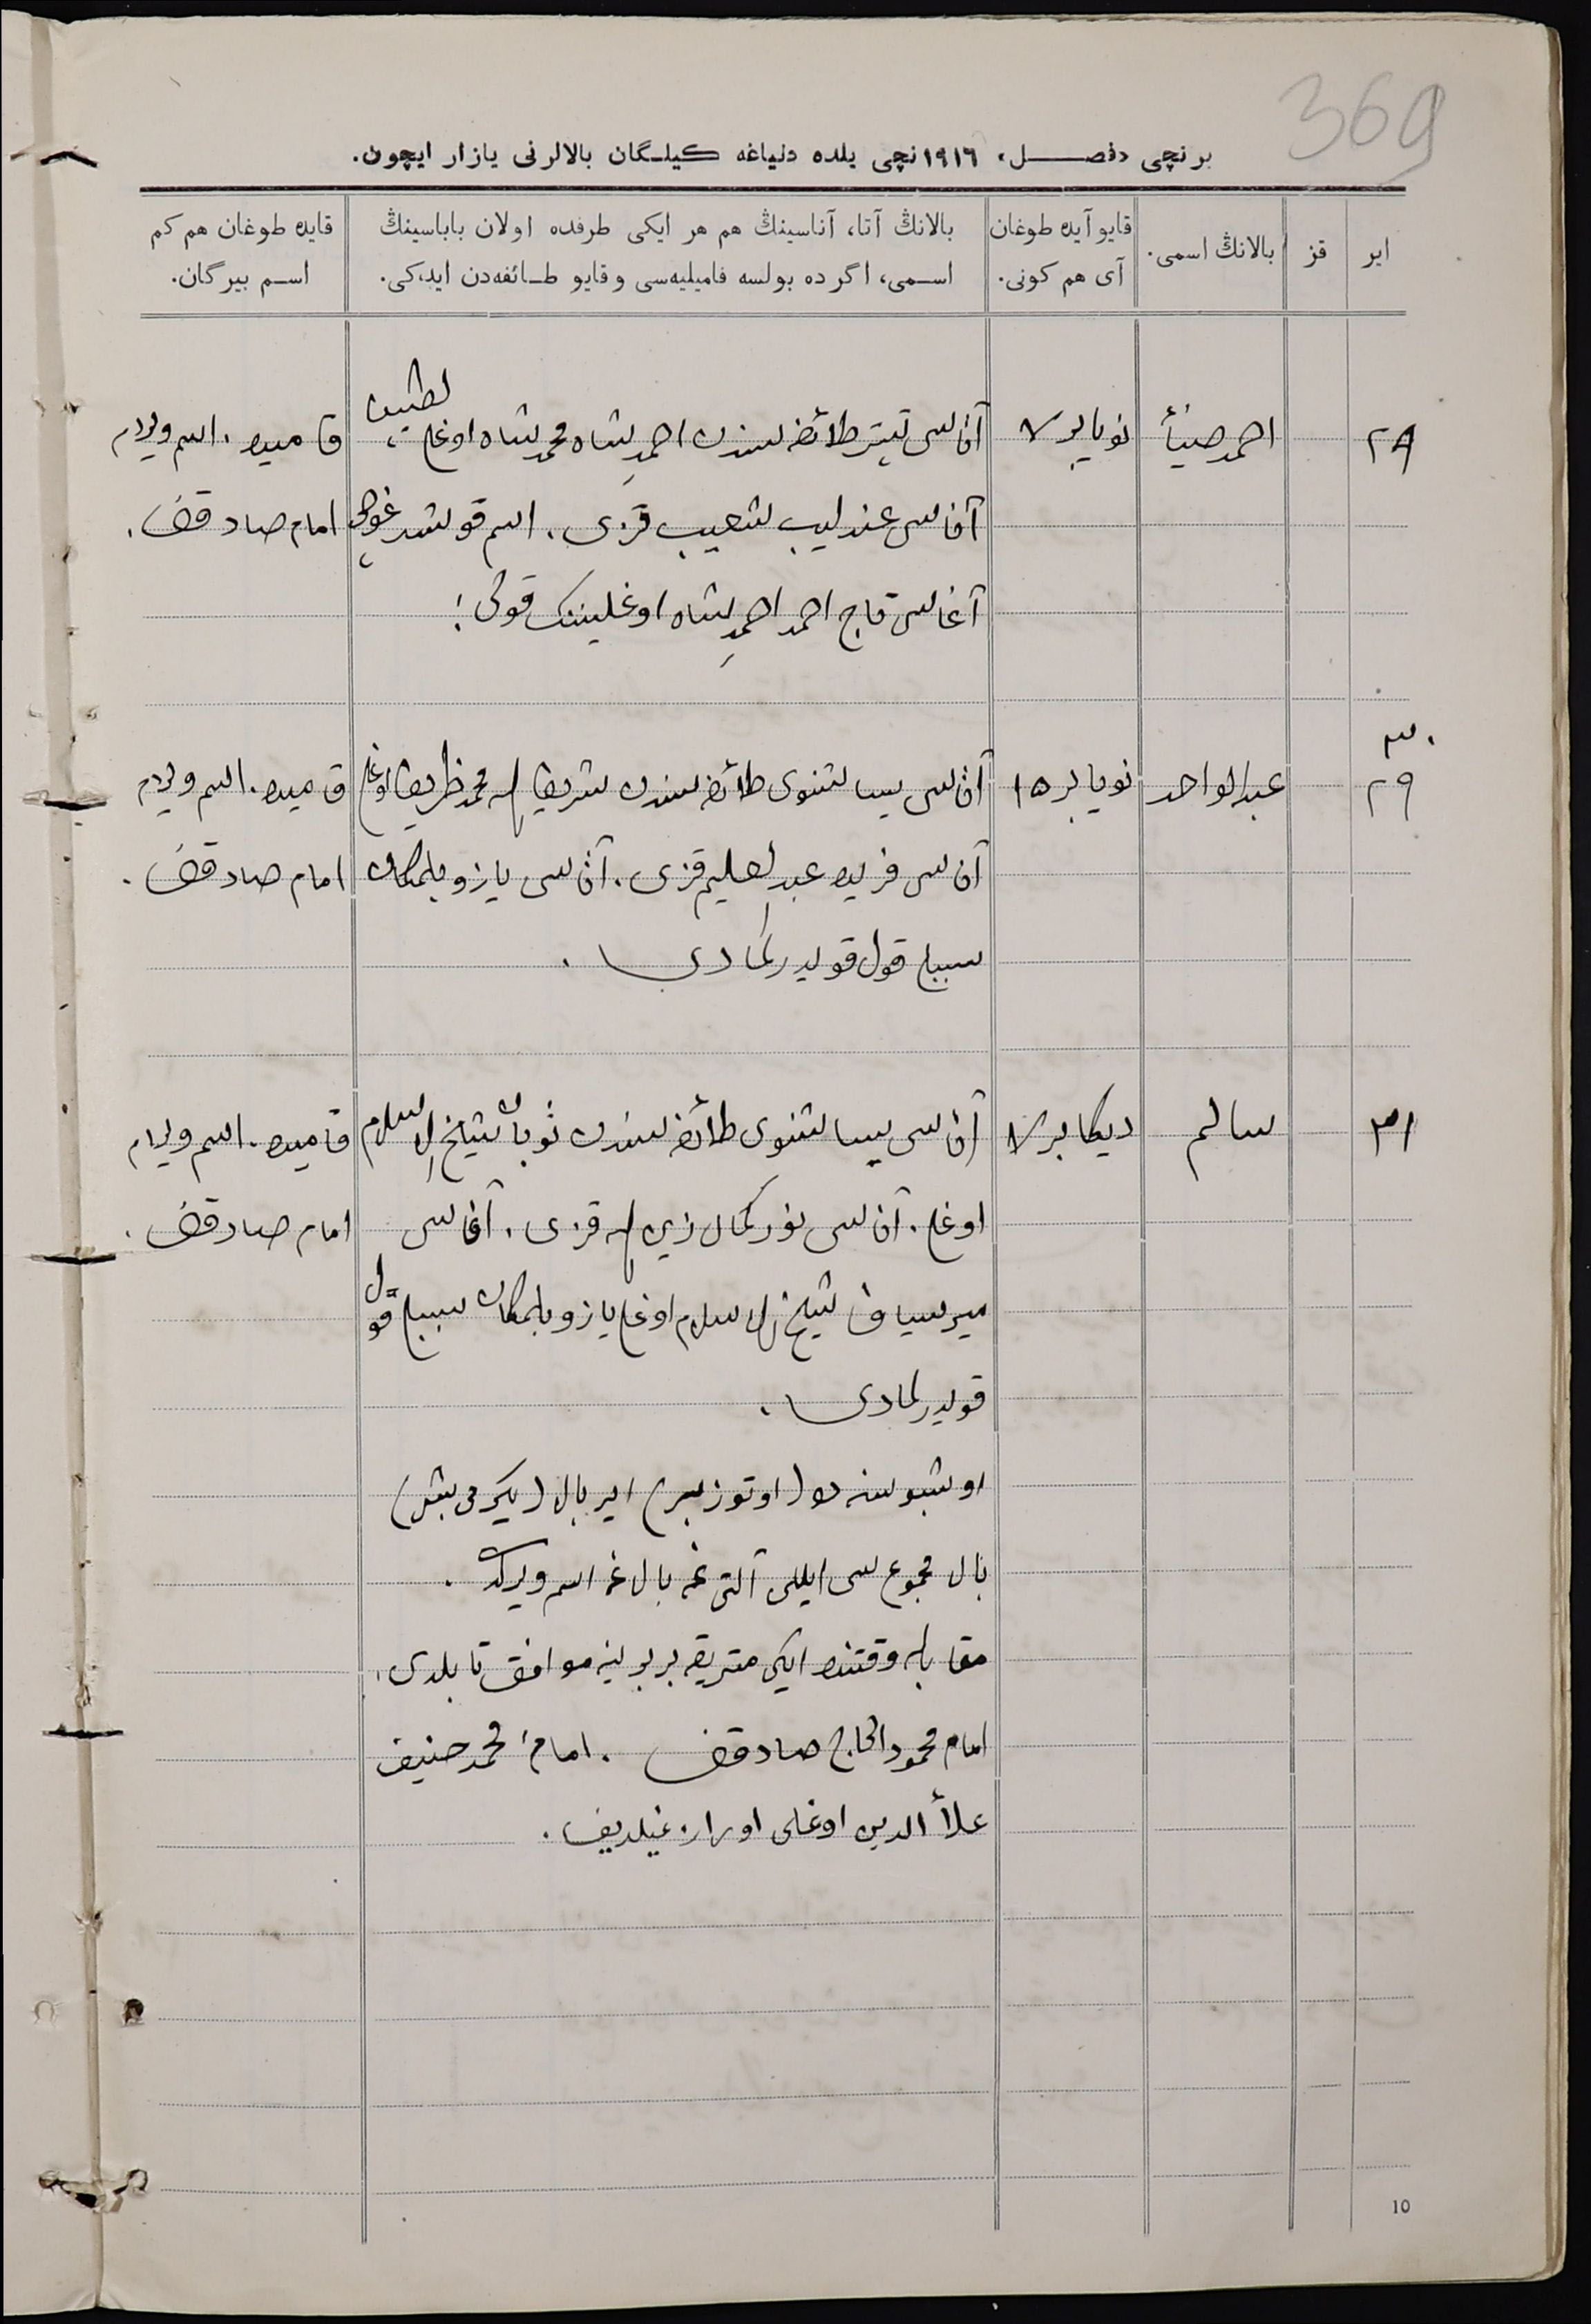 369
برنچی «فصل» ١٩١٦نچی يلده دنیاغه كیلـگان بالالرنی يازار ايچون.
ایر
قز
بالانڭ اسمی.
قایو آیده طوغان
آی هم کونی.
بالانڭ آتا، آناسینڭ هم هر ایکی طرفده اولان باباسینڭ
اسـمی، اگر ده بولسه فامیلیه‌سی و قایو طـائفه‌دن ایدکی.
قایده طوغان هم کم
اسـم بیرگان.
٢٩
احمد ضیأ
نویابر ٧
آتاسی تپتر طائفه سندن احمدشاه محمدشاه اوغلی لطیف
آناسی عندلیب شعیب قزی. اسم قوشدرغوچی
آغاسی تاج احمد احمدشاه اوغلیننک قولی:
امام صادقف.
٣٠
٢٩
عبدالواحد
نویابر ١٥
آتاسی طائفه سندن محمد ظریف اوغلی
آناسی فریده عبدالعلیم قزی. آتاسی یازو بلمکان
سببلی قول قویدرلمادی.
امام صادقف.
٣١
سالم
دیکابر ٧
آتاسی طائفه سندن شیخ الاسلام
اوغلی. آناسی نورکمال قزی. آتاسی
شیخ الاسلام اوغلی یازو بلمکان سببلی قول
قویدرلمادی.
امام صادقف.
اوشبو سنه ده (اوتوز بیر) ایر بالا (یکرمی بیش)
بالا مجموعسی ایللی آلتی بالاغه اسم
مقابله وقتنده ایکی متریقه بر برینه موافق تابلدی.
امام محمود الحاج صادقف. امام محمد حنیف
علأ الدین اوغلی اورازغیلدیف.
10